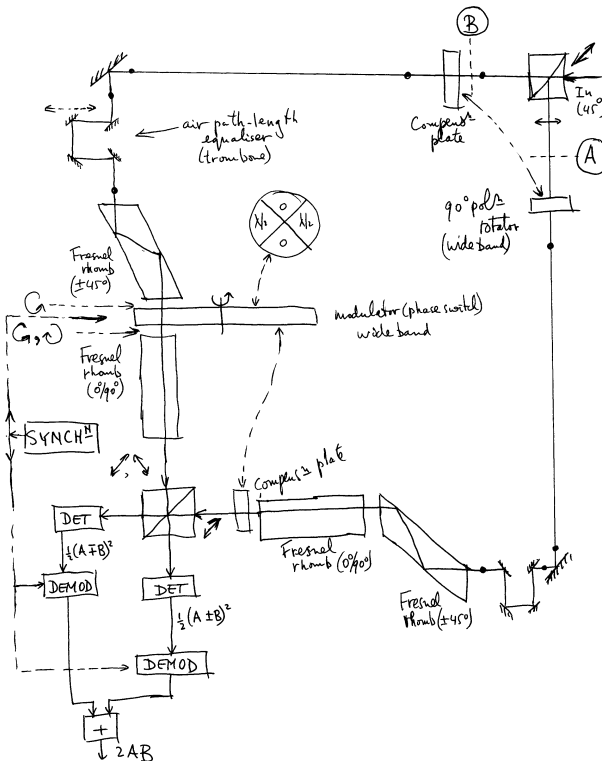 B
In
(45°)
Compens.ⁿ
plate
A
air path-length
equaliser
(trombone)
90° pol.ⁿ
rotator
(wide band)
λ/2
λ/2
0
0
Fresnel
rhomb
(±45°)
modulator (phase switch)
wide band
Fresnel
rhomb
(0°/90°)
SYNCHᴺ
Compens.ⁿ plate
DET
Fresnel
rhomb (0°/90°)
½(A∓B)²
DET
DEMOD
Fresnel
rhomb (±45°)
½(A±B)²
DEMOD
+
2AB